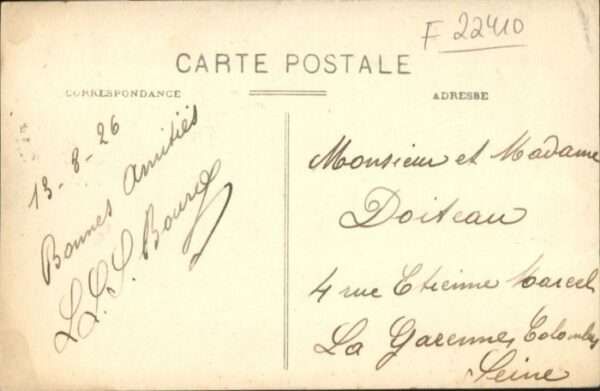 F 22410
CARTE POSTALE
CORRESPONDANCE
ADRESSE
13-8-26
Bonnes Amitiés
L.L.S. Bourg
Monsieur et Madame
Doiteau
4 rue Etienne Marcel
La Garennes Colombes
Seine